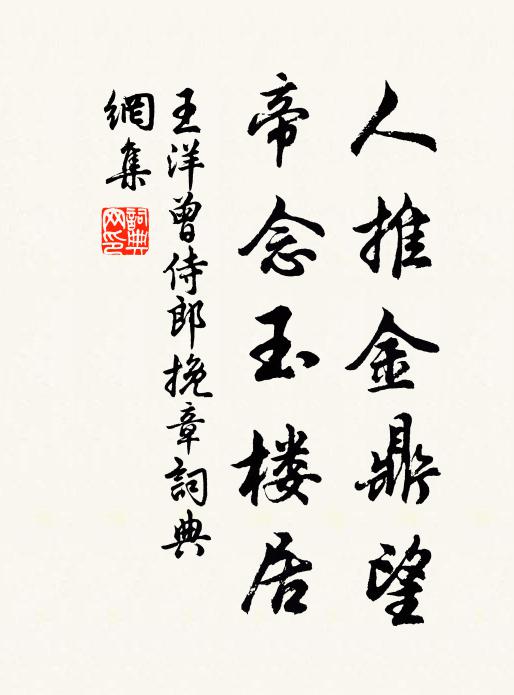 人推金鼎望
帝念玉楼居
王洋曾侍郎挽章詞典
網集
詞典
网印